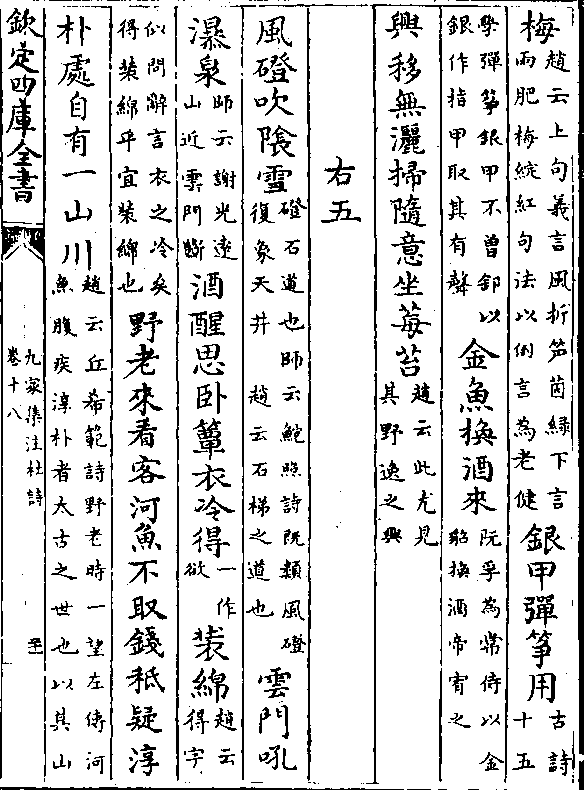 梅趙云上句義言風折笋茵緑下言雨肥梅綻紅句法以倒言為老健銀甲彈箏用古詩十五
學彈箏銀甲不曾卸以銀作指甲取其有聲金魚換酒來阮孚為常侍以金貂換酒帝宥之
興移無灑掃隨意坐莓苔趙云此尤見其野逸之興
右五
風磴吹隂雪磴石道也師云鮑照詩既類風磴復象天井 趙云石梯之道也雲門吼
瀑泉師云謝光逺山近雲門斷酒醒思卧簟衣冷得一作欲装綿趙云得字
似問辭言衣之冷矣得装綿乎宜装綿也野老來看客河魚不取錢秪疑淳
朴處自有一山川趙云丘希範詩野老時一望左傳河魚腹疾淳朴者太古之世也以其山
欽定四庫全書
九家集注杜詩
卷十八